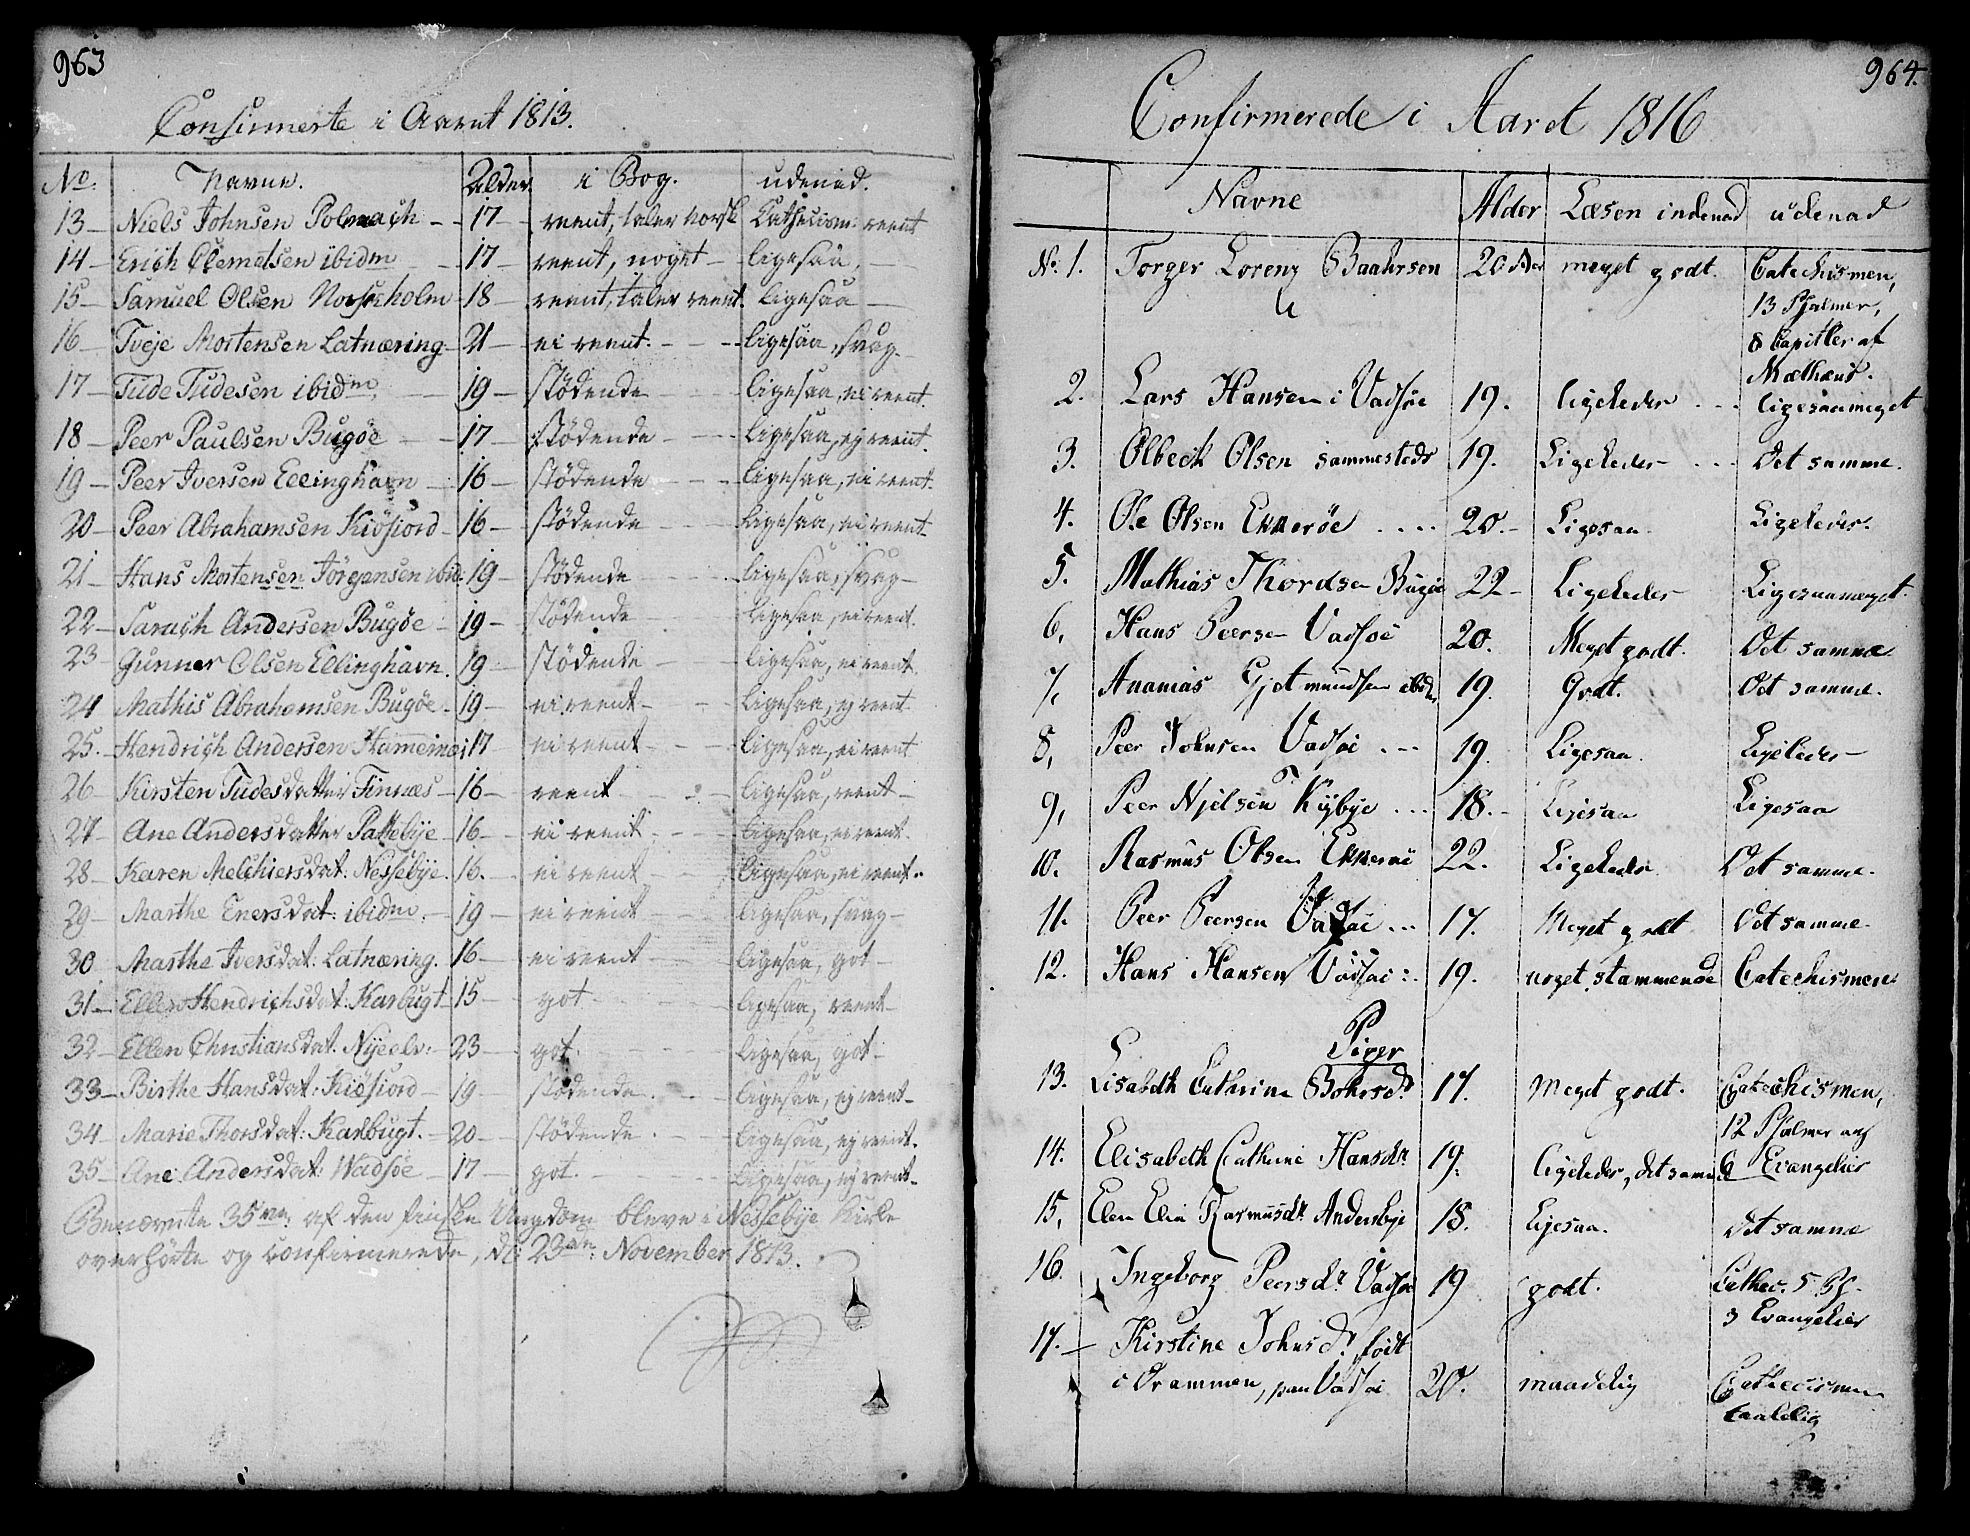 963
Confirmerte i Aaret 1813.
No. Navne. Alder i Bog. udenad.
13 – Niels Johnsen Polmach – 17 – reent, taler norsk Cathecism: reent
14 – Erich Clemetsen ibidm – 17 – reent, noget – ligesaa –
15 – Samuel Olsen – 18 – reent, taler reent ligesaa –
16 – Tveje Mortensen Latnæring – 21 – ei reent. – – ligesaa, svag –
17 – Tude Tudesen ibidm. – 19 – stödende ligesaa, ei reent.
18 – Peer Paulsen Bugöe – 17 – stödende – ligesaa, ej reent.
19 – Peer Iversen Ellinghavn – 16 – stödende – ligesaa, ei reent.
20 – Peer Abrahamsen Kiöfiord – 16 – stödende – ligesaa, ei reent
21 – Hans Mortensen Jörgensen ibid: 19 – stödende – ligesaa, svag –
22 – Sarach Andersen Bugöe – 19 – stödende ligesaa, ei reent.
23 Gunner Olsen Ellinghavn. 19 – stödende – ligesaa, ei reent
24 Mathis Abrahamsen Bugöe – 19 – ei reent – – ligesaa, ej reent
25. Hendrich Andersen 17 ei reent – – ligesaa, ei reent
26 – Kirsten Tudesdatter Finnæs – 16 – reent – ligesaa, reent –
27 – Ane Andersdatter Pattebye – 16 – ei reent – – ligesaa, ei reent
28 – Karen Melchiersdat: Nessebye. 16. – ei reent – – ligesaa, ei reent.
29 – Marthe Enersdat: ibidm. – 19 – ei reent – – ligesaa, svag –
30 Marthe Iversdat: Latnæring. 16 – ei reent – ligesaa, got –
31 – Ellen Hendrichsdat: Karbugt 15 got. – ligesaa, reent –
32 – Ellen Christiansdat. Nyeelv: – 23 – got. – ligesaa, got –
33 – Birthe Hansdat: Kiöfiord – 19 – stödende. – ligesaa, ej reent –
34 – Marie Thorsdat: Karbugt. – 20 – stödende. – – ligesaa, ej reent.
35 – Ane Andersdat: Wadsöe – 17 – got. – – ligesaa, ej reent –
Benævnte 35 af den finske Ungdom bleve i Nessebye Kirke
overhörte og confirmerede, d: 23de: November 1813.
964.
Confirmerede i Aaret 1816
Navne Alder Læsen indenad udenad
No. 1. Torger Lorenz Baahrsen 20 Aar meget godt. Catechismen,
13 Psalmer,
8 Capitler af
Mathæus.
2. Lars Hansen i Vadsöe 19. ligeledes ... ligesaameget
3. Olbech Olsen sammesteds 19. Ligeledes – ... Det samme.
4. Ole Olsen Ekkeröe .... 20. – Ligesaa. Ligeledes.
5. Mathias Thordsen Bugöe 22 – Ligeledes – Ligesaameget.
6, Hans Peersen Vadsöe 20. Meget godt. Det samme
7, Ananias Gjetmundsen ibidm 19. Godt. Det samme.
8, Peer Johnsen Vadsöe ... 19. Ligesaa. Ligeledes –
9, Peer Njelsen Kybye ... 18. – Ligesaa Ligesaa
10. Rasmus Olsen Ekkeröe 22. Ligeledes Det samme.
11. Peer Peersen Vadsöe ... 17. Meget godt Det samme.
12. Hans Hansen Vadsöe : 19. noget stammende Catechismen
Piger
13. Lisabeth Cathrine Bohrsdr. 17. Meget godt. Catechismen,
12 Psalmer og
14. Elisabeth Cathrine Hansdr. 19. ligeledes, det samme 6 Evangelier
15, Elen Elie Rasmusdr. Andersbye 18. Ligesaa. Det samme
16. Ingeborg Peersdr. Vadsöe 19 godt. Cathec. 5 Ps.
3 Evangelier
17. – Kirstine Johnsdr. födt
i Drammen, paa Vadsöe 20. maadelig Cathecismen
taalelig